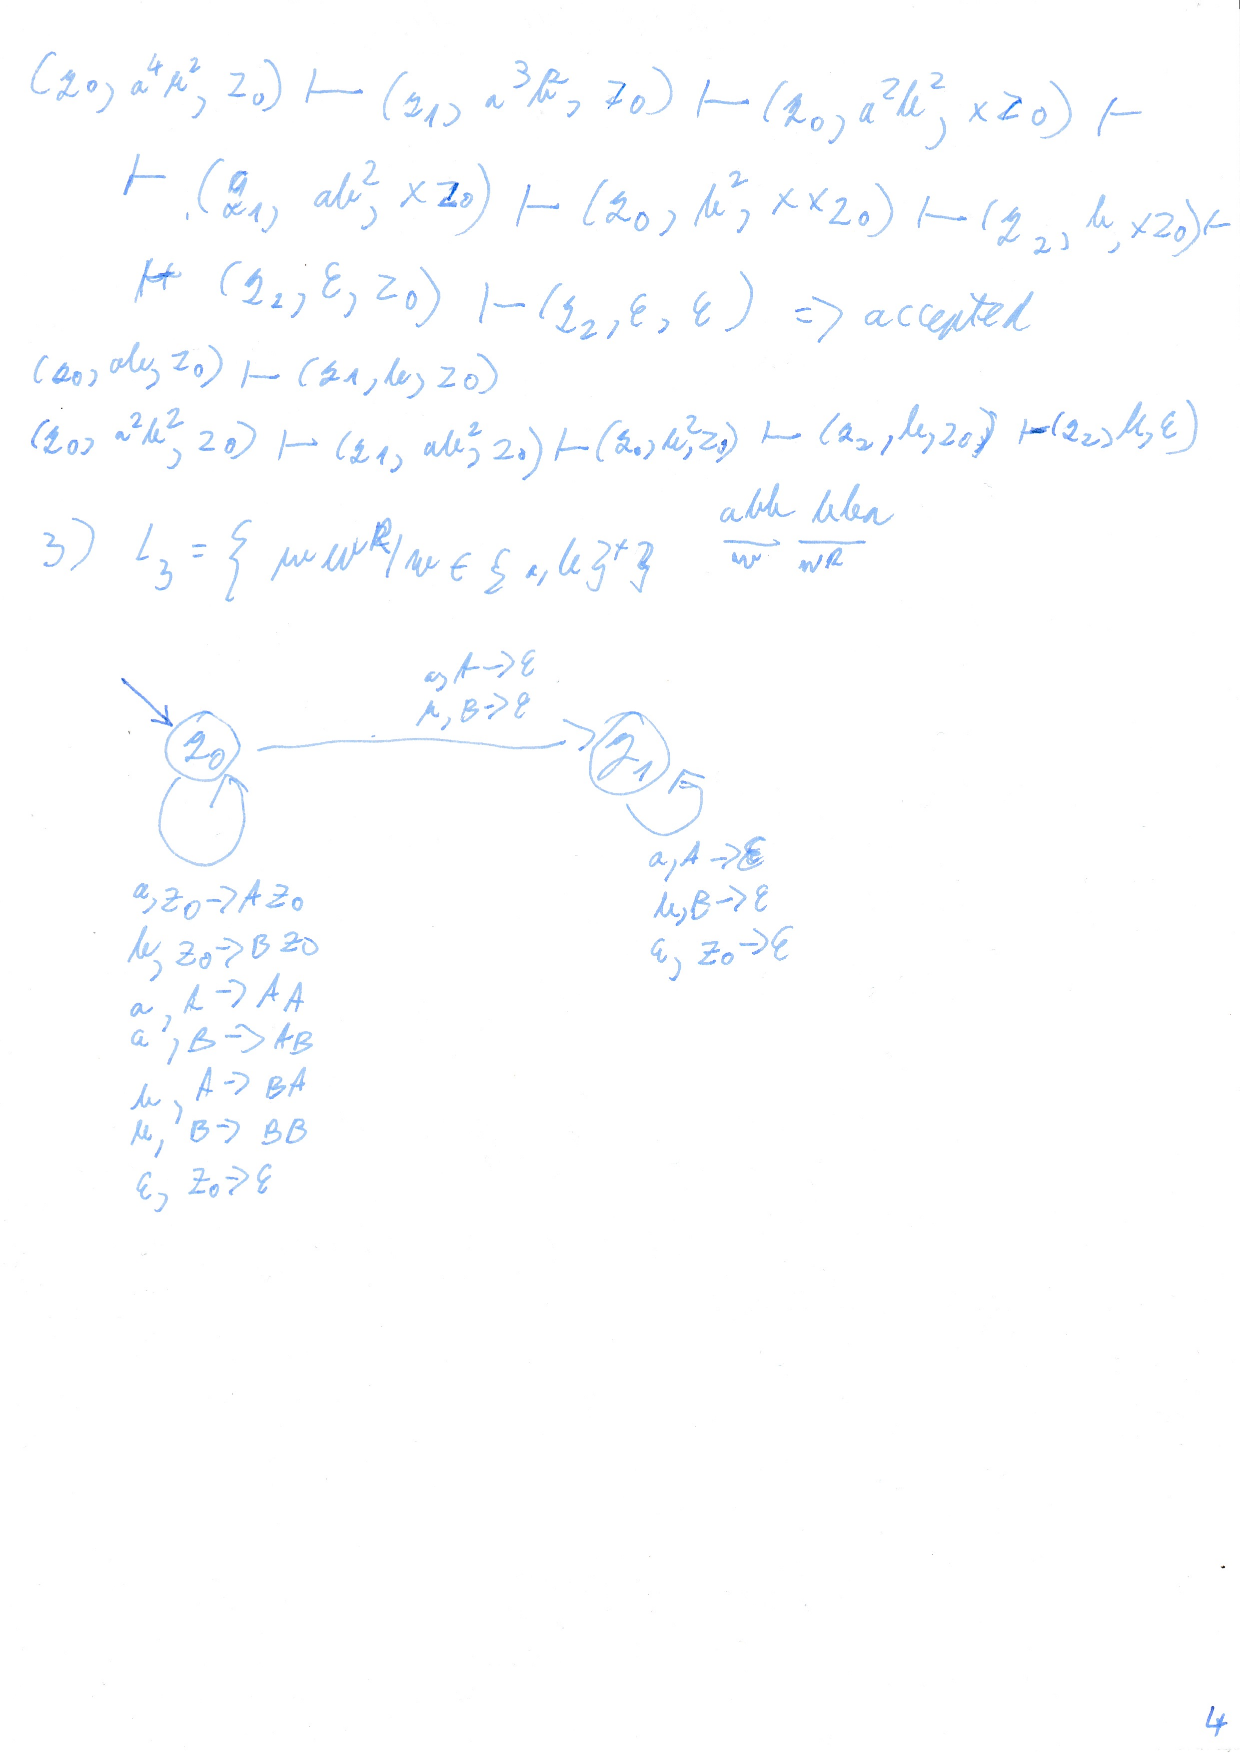 (q₀, a⁴b², z₀) ⊢ (q₁, a³b², z₀) ⊢ (q₀, a²b², xz₀) ⊢
⊢ (q₁, ab², xz₀) ⊢ (q₀, b², xxz₀) ⊢ (q₂, b, xz₀) ⊢
⊢ (q₂, ε, z₀) ⊢ (q₂, ε, ε) => accepted
(q₀, ab, z₀) ⊢ (q₁, b, z₀)
(q₀, a²b², z₀) ⊢ (q₁, ab², z₀) ⊢ (q₀, b², z₀) ⊢ (q₂, b, z₀) ⊢ (q₂, b, ε)
3) L₃ = { ww^R | w ∈ {a, b}⁺ } abb bba
w w^R
a, A -> ε
b, B -> ε
q₀ q₁
a, A -> ε
b, B -> ε
ε, z₀ -> ε
a, z₀ -> A z₀
b, z₀ -> B z₀
a, A -> A A
a, B -> AB
b, A -> BA
b, B -> BB
ε, z₀ -> ε
4